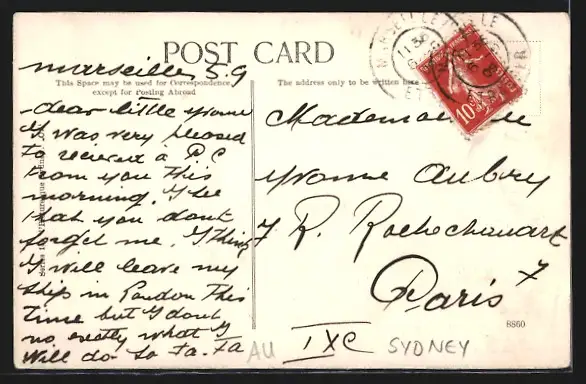 POST CARD
marseille 5.9
This Space may be used for Correspondence
except for Posting Abroad
The address only to be written here
dear little yvonne
I was very pleased
to recieved a PC
from you this
morning. I see
that you dont
forget me. I think
I will leave my
ship in London this
time but I dont
no exatly what I
will do so ta-ta
Mademoiselle
yvonne Aubry
7 R. Rochechouart
Paris
IXC
8860
AU
SYDNEY
MARSEILLE
10